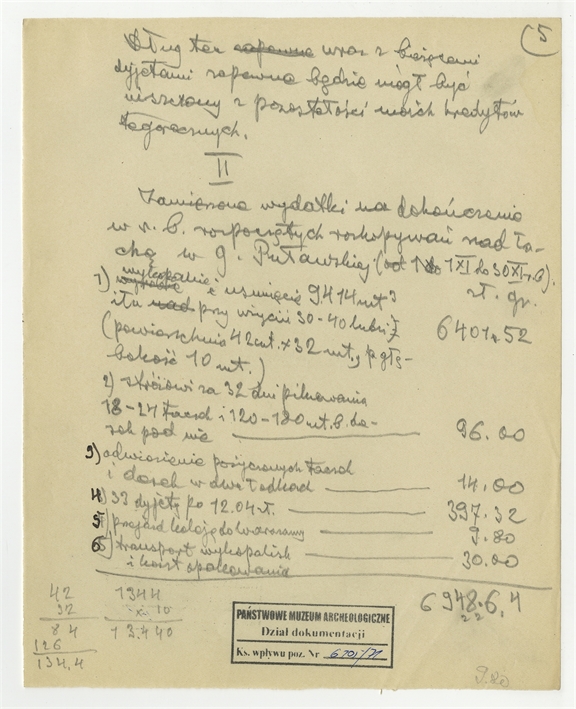 (5
Dług ten zapewne wraz z bieżącemi
dyjetami zapewne będzie mógł być
uiszczony z pozostałości moich kredytów
tegorocznych.
II
Zamierzone wydatki na dokończenie
w r. b. rozpoczętych rozkopywań nad Ła-
chą w g. Puławskiej (od 1 do 1 XI do 30 XI r. b).
zł. gr.
1) wykopanie i usunięcie 9414 mt³
iłu nad przy użyciu 30-40 ludzi
6401.52
(powierzchnia 42 mt. x 32 mt., głę-
bokość 10 mt.)
2) stróżowi za 32 dni pilnowania
18-27 taczek i 120-180 mt. b. de-
sek pod nie 96.00
3) odwiezienie pożyczonych taczek
i desek w dwóch 14.00
4) 33 dyjety po 12.04 zł. 397.32
5) przejazd koleją do Warszawy 9.80
6) transport wykopalisk
i koszt opakowania 30.00
6948.6.4
2 2
42
32
84
126
134,4
1344
x 10
13.440
PAŃSTWOWE MUZEUM ARCHEOLOGICZNE
Dział dokumentacji
Ks. wpływu poz. Nr
9.80